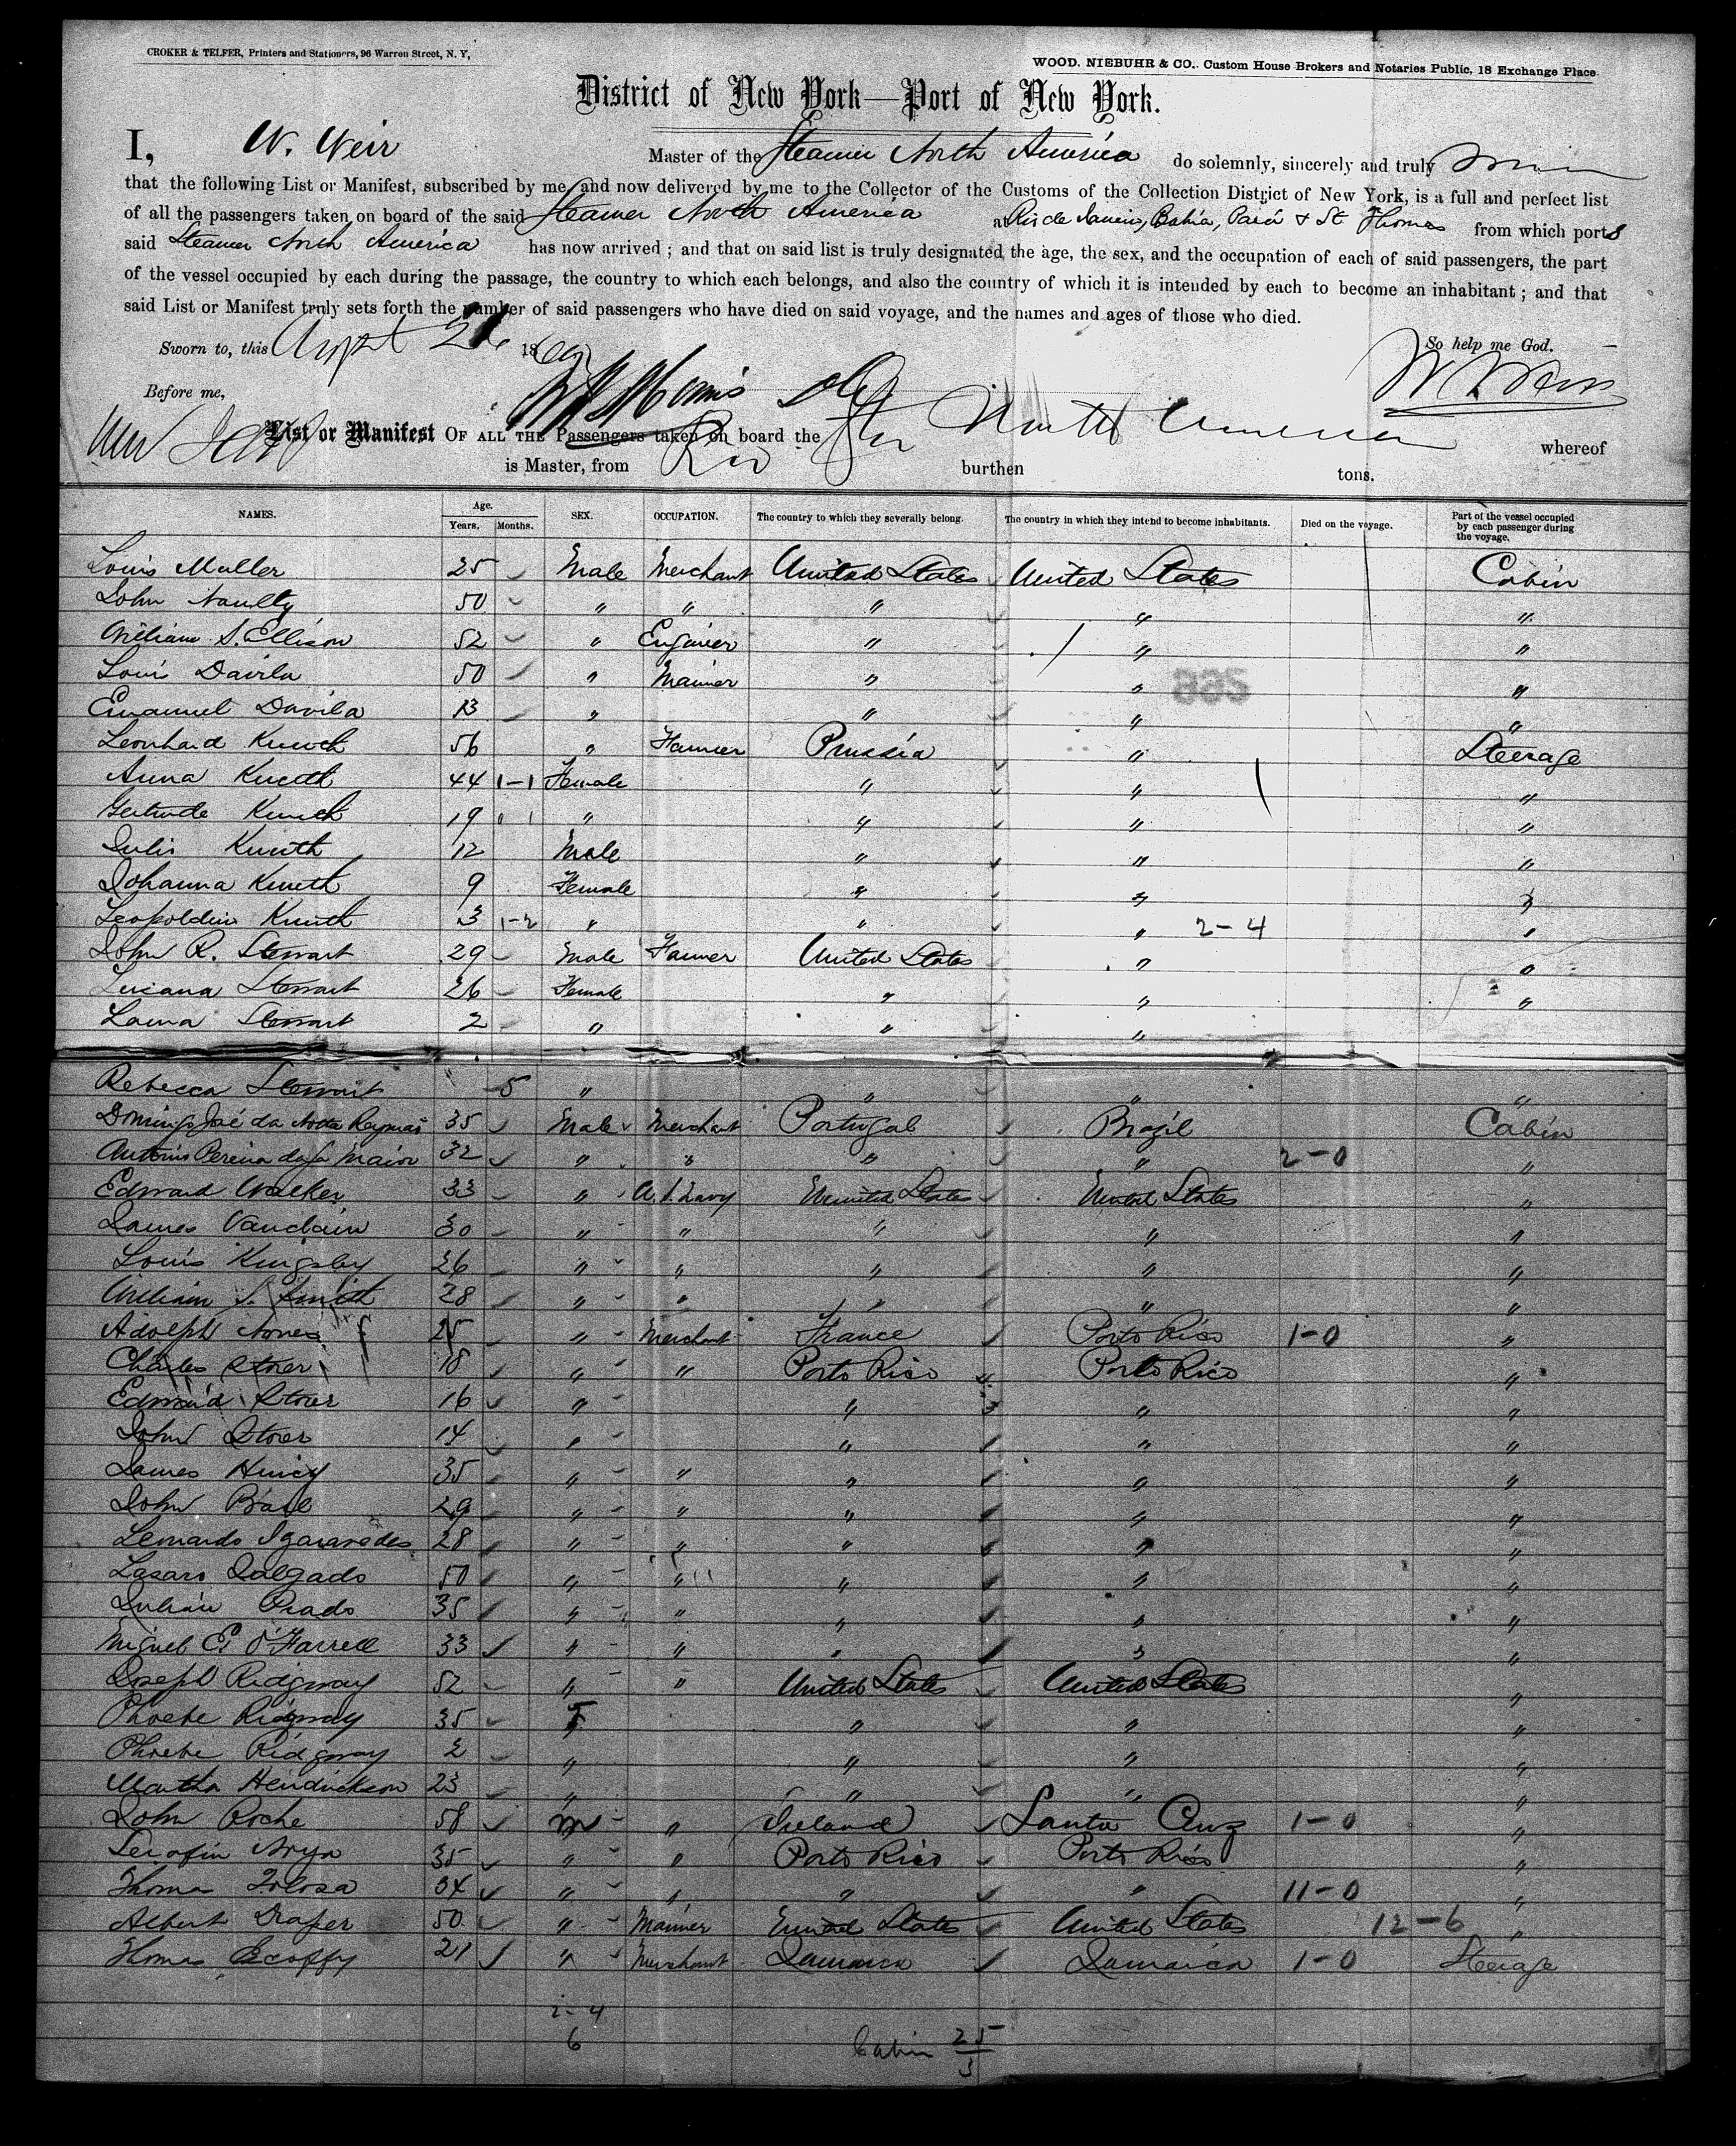 CROKER & TELFER, Printers and Stationers, 96 Warren Street, N. Y,
WOOD, NIEBUHR & CO., Custom House Brokers and Notaries Public, 18 Exchange Place.
District of New York—Port of New York.
I, W. Weir Master of the Steamer North America do solemnly, sincerely and truly
that the following List or Manifest, subscribed by me, and now delivered by me to the Collector of the Customs of the Collection District of New York, is a full and perfect list
of all the passengers taken on board of the said Steamer North America at Rio de Janeiro, Bahia, Pará & St Thomas from which ports
said Steamer North America has now arrived ; and that on said list is truly designated the age, the sex, and the occupation of each of said passengers, the part
of the vessel occupied by each during the passage, the country to which each belongs, and also the country of which it is intended by each to become an inhabitant ; and that
said List or Manifest truly sets forth the number of said passengers who have died on said voyage, and the names and ages of those who died.
Sworn to, this 18 So help me God.
Before me,
List or Manifest OF ALL THE Passengers taken on board the North America whereof
is Master, from Rio burthen tons.
NAMES. Age. Years. Months. SEX. OCCUPATION. The country to which they severally belong. The country in which they intend to become inhabitants. Died on the voyage. Part of the vessel occupied by each passenger during the voyage.
Louis Muller 25 Male Merchant United States United States Cabin
John 50 " " " " "
William S. Ellison 52 " Enginier " " "
Louis Davila 50 " Mariner " " "
Emanuel Davila 13 " " " "
Leonhard 56 " Farmer Prussia " Steerage
Anna 44 1-1 Female " " "
Gertrude 19 " " " "
Julis 12 Male " " "
Johanna Kneth 9 Female " " "
Leopoldin 3 1-2 " " " 2-4 "
John R. Stewart 29 Male Farmer United States " "
Luciana Stewart 26 Female " " "
Laura Stewart 2 " " " "
Rebecca Stewart " 5 " " " "
Domingo José da Motta 35 Male Merchant Portugal Brazil Cabin
Antonio Pereira da 32 " " " " 2-0 "
Edward Walker 33 " U.S. Navy United States United States "
James Vauclain 30 " " " " "
Louis Kingsley 26 " " " " "
William S. Smith 28 " " " " "
Adolph 25 " Merchant France Porto Rico 1-0 "
Charles Storer 18 " " Porto Rico Porto Rico "
Edward Storer 16 " " " "
John Storer 14 " " " "
James 35 " " " " "
John 29 " " " " "
Leonardo Igaravedes 28 " " " " "
Lasaro Salgado 50 " " " " "
Julian Prado 35 " " " " "
Miguel E. O'Farrell 33 " " " " "
Joseph Ridgway 52 " " United States United States "
Phoebe Ridgway 35 F " " "
Phoebe Ridgway 2 " " " "
Martha Hendrickson 23 " " " "
John Roche 58 M " Ireland Santa Cruz 1-0 "
Serafin 35 " " Porto Rico Porto Rico "
Thomas Tolosa 34 " " " " 11-0 "
Albert Draper 50 " Mariner United States United States 12-6 "
Thomas Escoffy 21 " Merchant Jamaica Jamaica 1-0 Steerage
2-4
6 Cabin 25
3